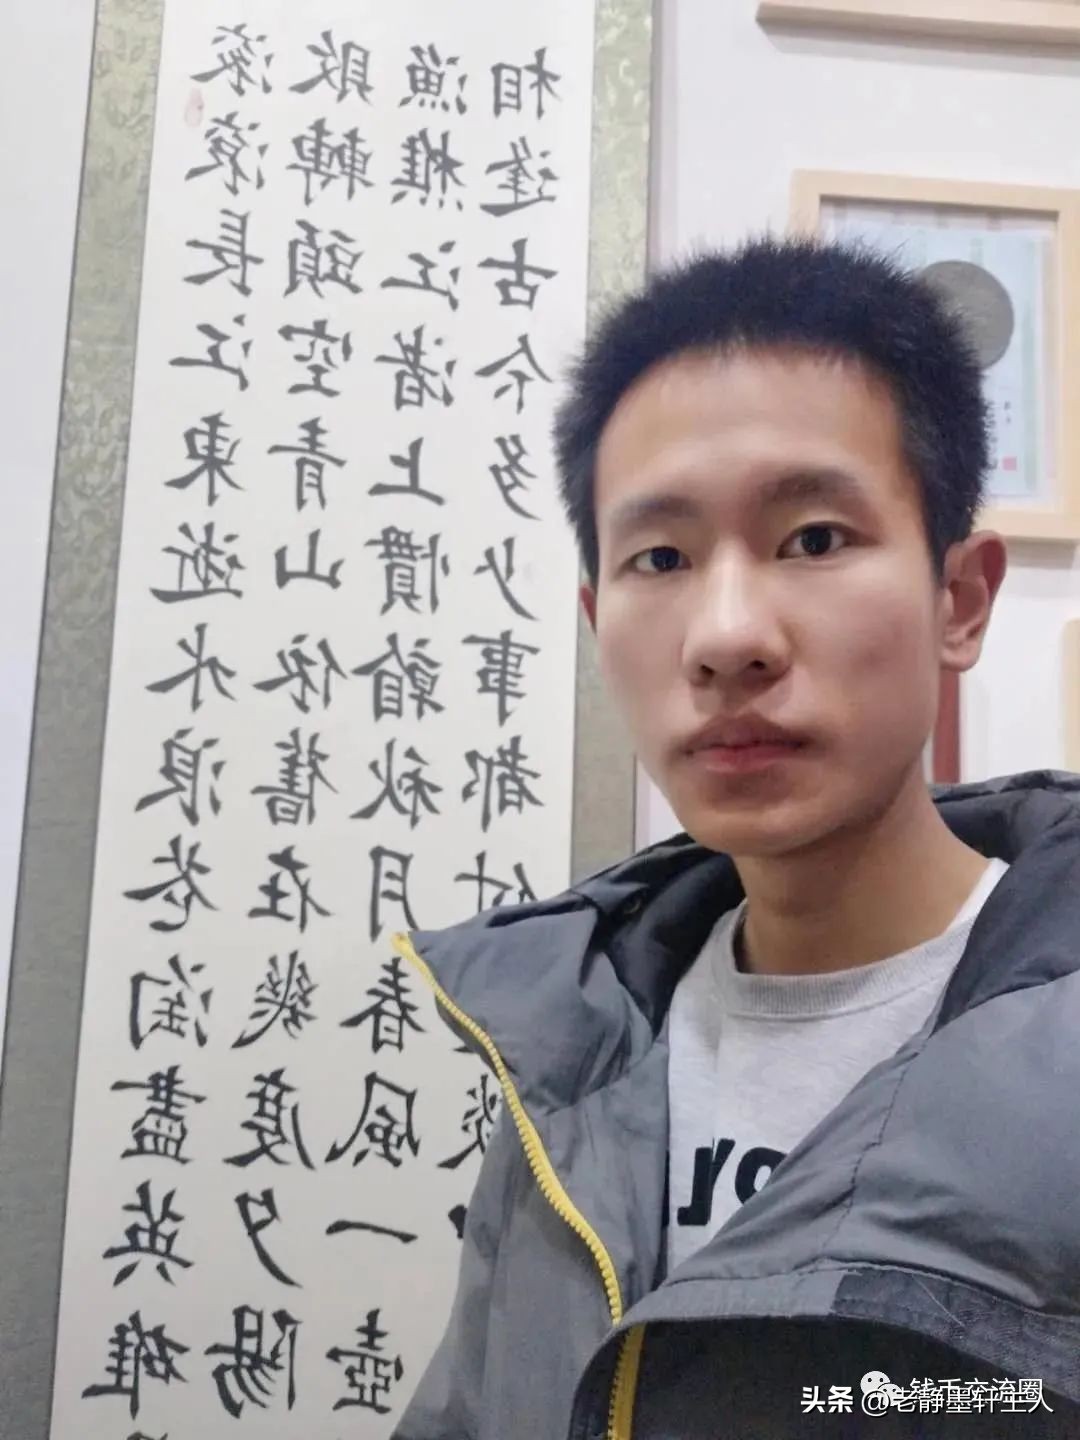 滚滚長江東逝水浪花淘盡英雄
敗轉頭空青山依舊在幾度夕陽
漁樵江渚上慣看秋月春風一壺
相逢古今多少事都付
钱币交流圈
头条 @老静墨轩主人